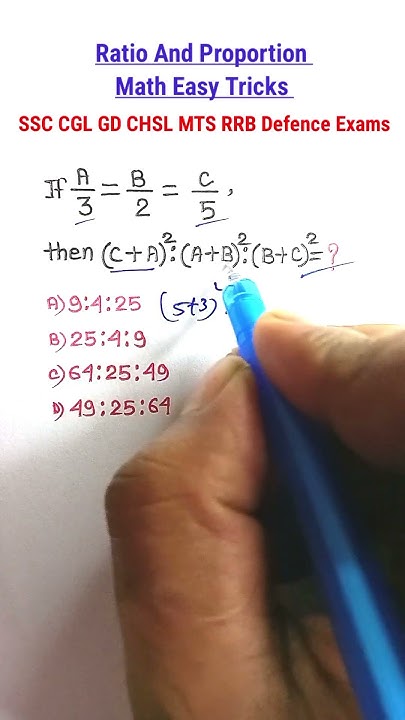 Ratio And Proportion
Math Easy Tricks
SSC CGL GD CHSL MTS RRB Defence Exams
If A/3 = B/2 = C/5,
then (C+A)²:(A+B)²:(B+C)²=?
A) 9:4:25 (5+3)
B) 25:4:9
C) 64:25:49
D) 49:25:64